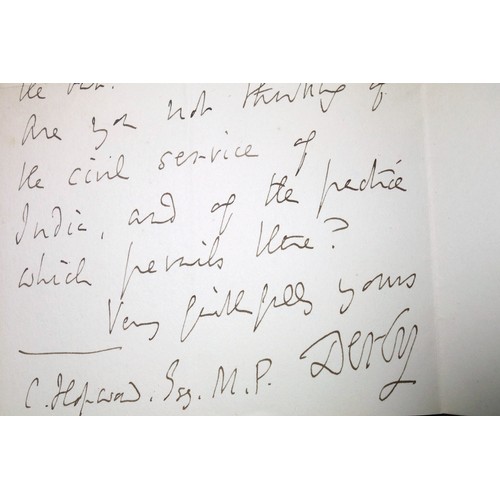 the
Are you not thinking of
the civil service of
India, and of the practice
which prevails there?
Very faithfully yours
Derby
C. Hopwood. Esq. M.P.